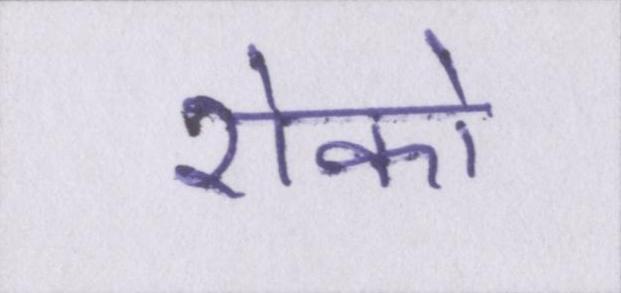 रोको